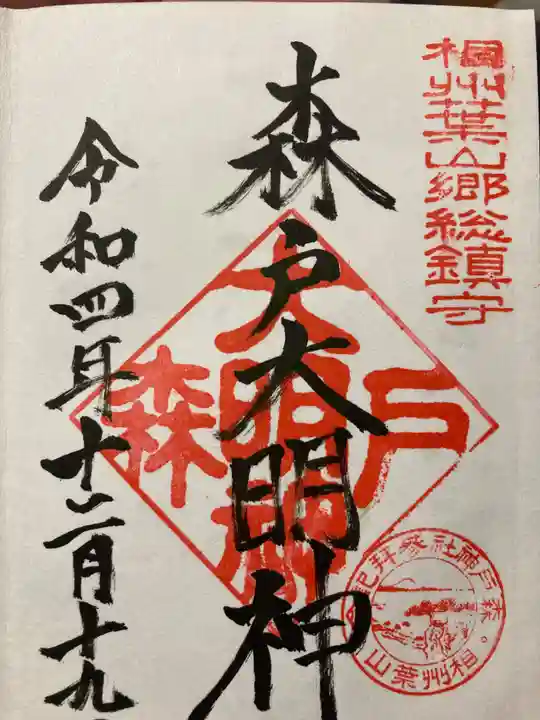 相州葉山郷総鎮守
森戸大明神
森戸大明神
令和四年十二月十九
森戸神社参拝記念
相州葉山